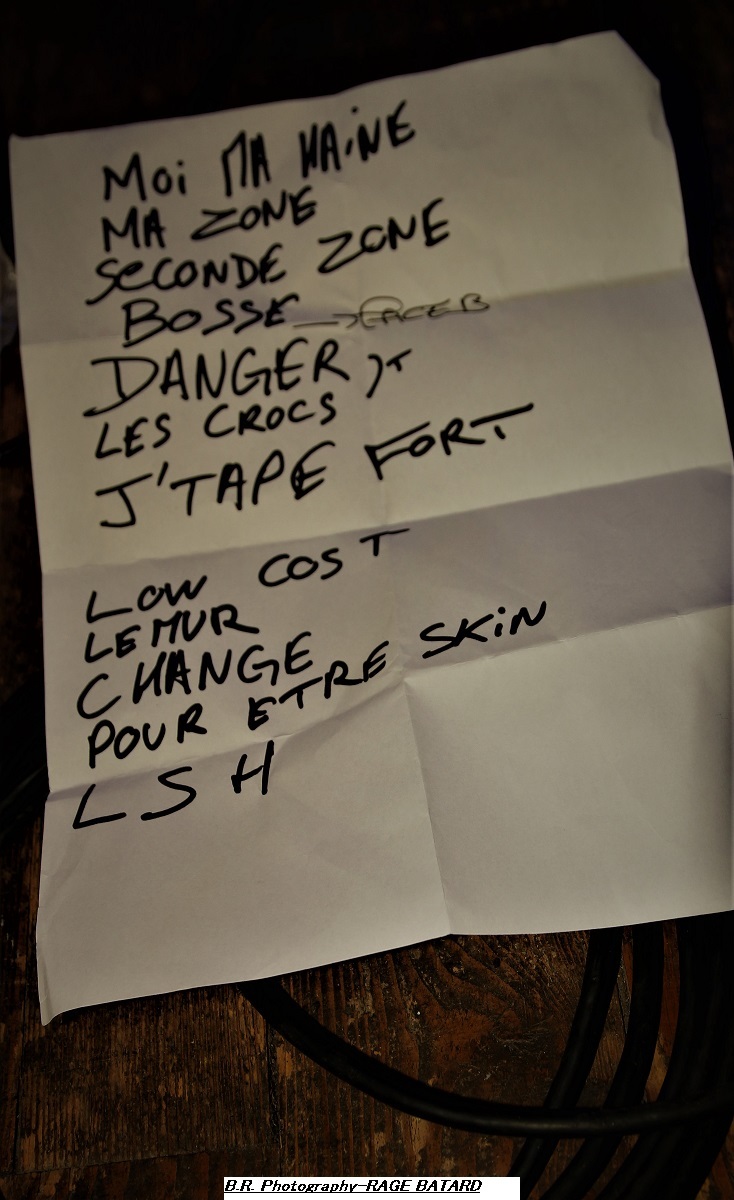 MOi MA HAiNE
MA ZONE
SECONDE ZONE
BOSSE → FACE B
DANGER
LES CROCS
J'TAPE FORT
LOW COST
LE MUR
CHANGE
POUR ETRE SKiN
LSH
B.R. Photography-RAGE BATARD